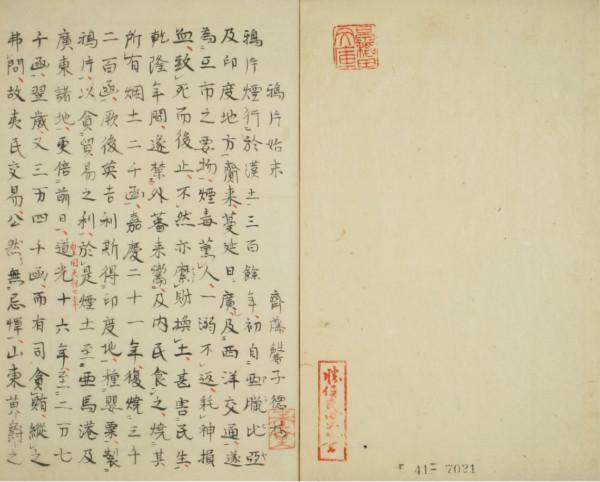 鴉片始末
齊藤馨子德撰
鴉片煙行於漢土三百餘年初自西臘比亞
及印度地方齎来蔓延日廣及西洋交通遂
為互市之要物煙毒薫人一溺不返耗神損
血致死而後止不然亦糜財換土甚害民生
乾隆年間遂禁外蕃来鬻及内民食之焼其
所有烟土二千函嘉慶二十一年復焼三千
二百函厥後英吉利斯得印度地種罌粟製
鴉片以貪貿易之利於是煙土至亜馬港及
廣東諸地更倍前日道光十六年至二万七
千函翌歳又三万四千函而有司貪賄縦之
弗問故夷民交易公然無忌憚山東
爵之
41-7021